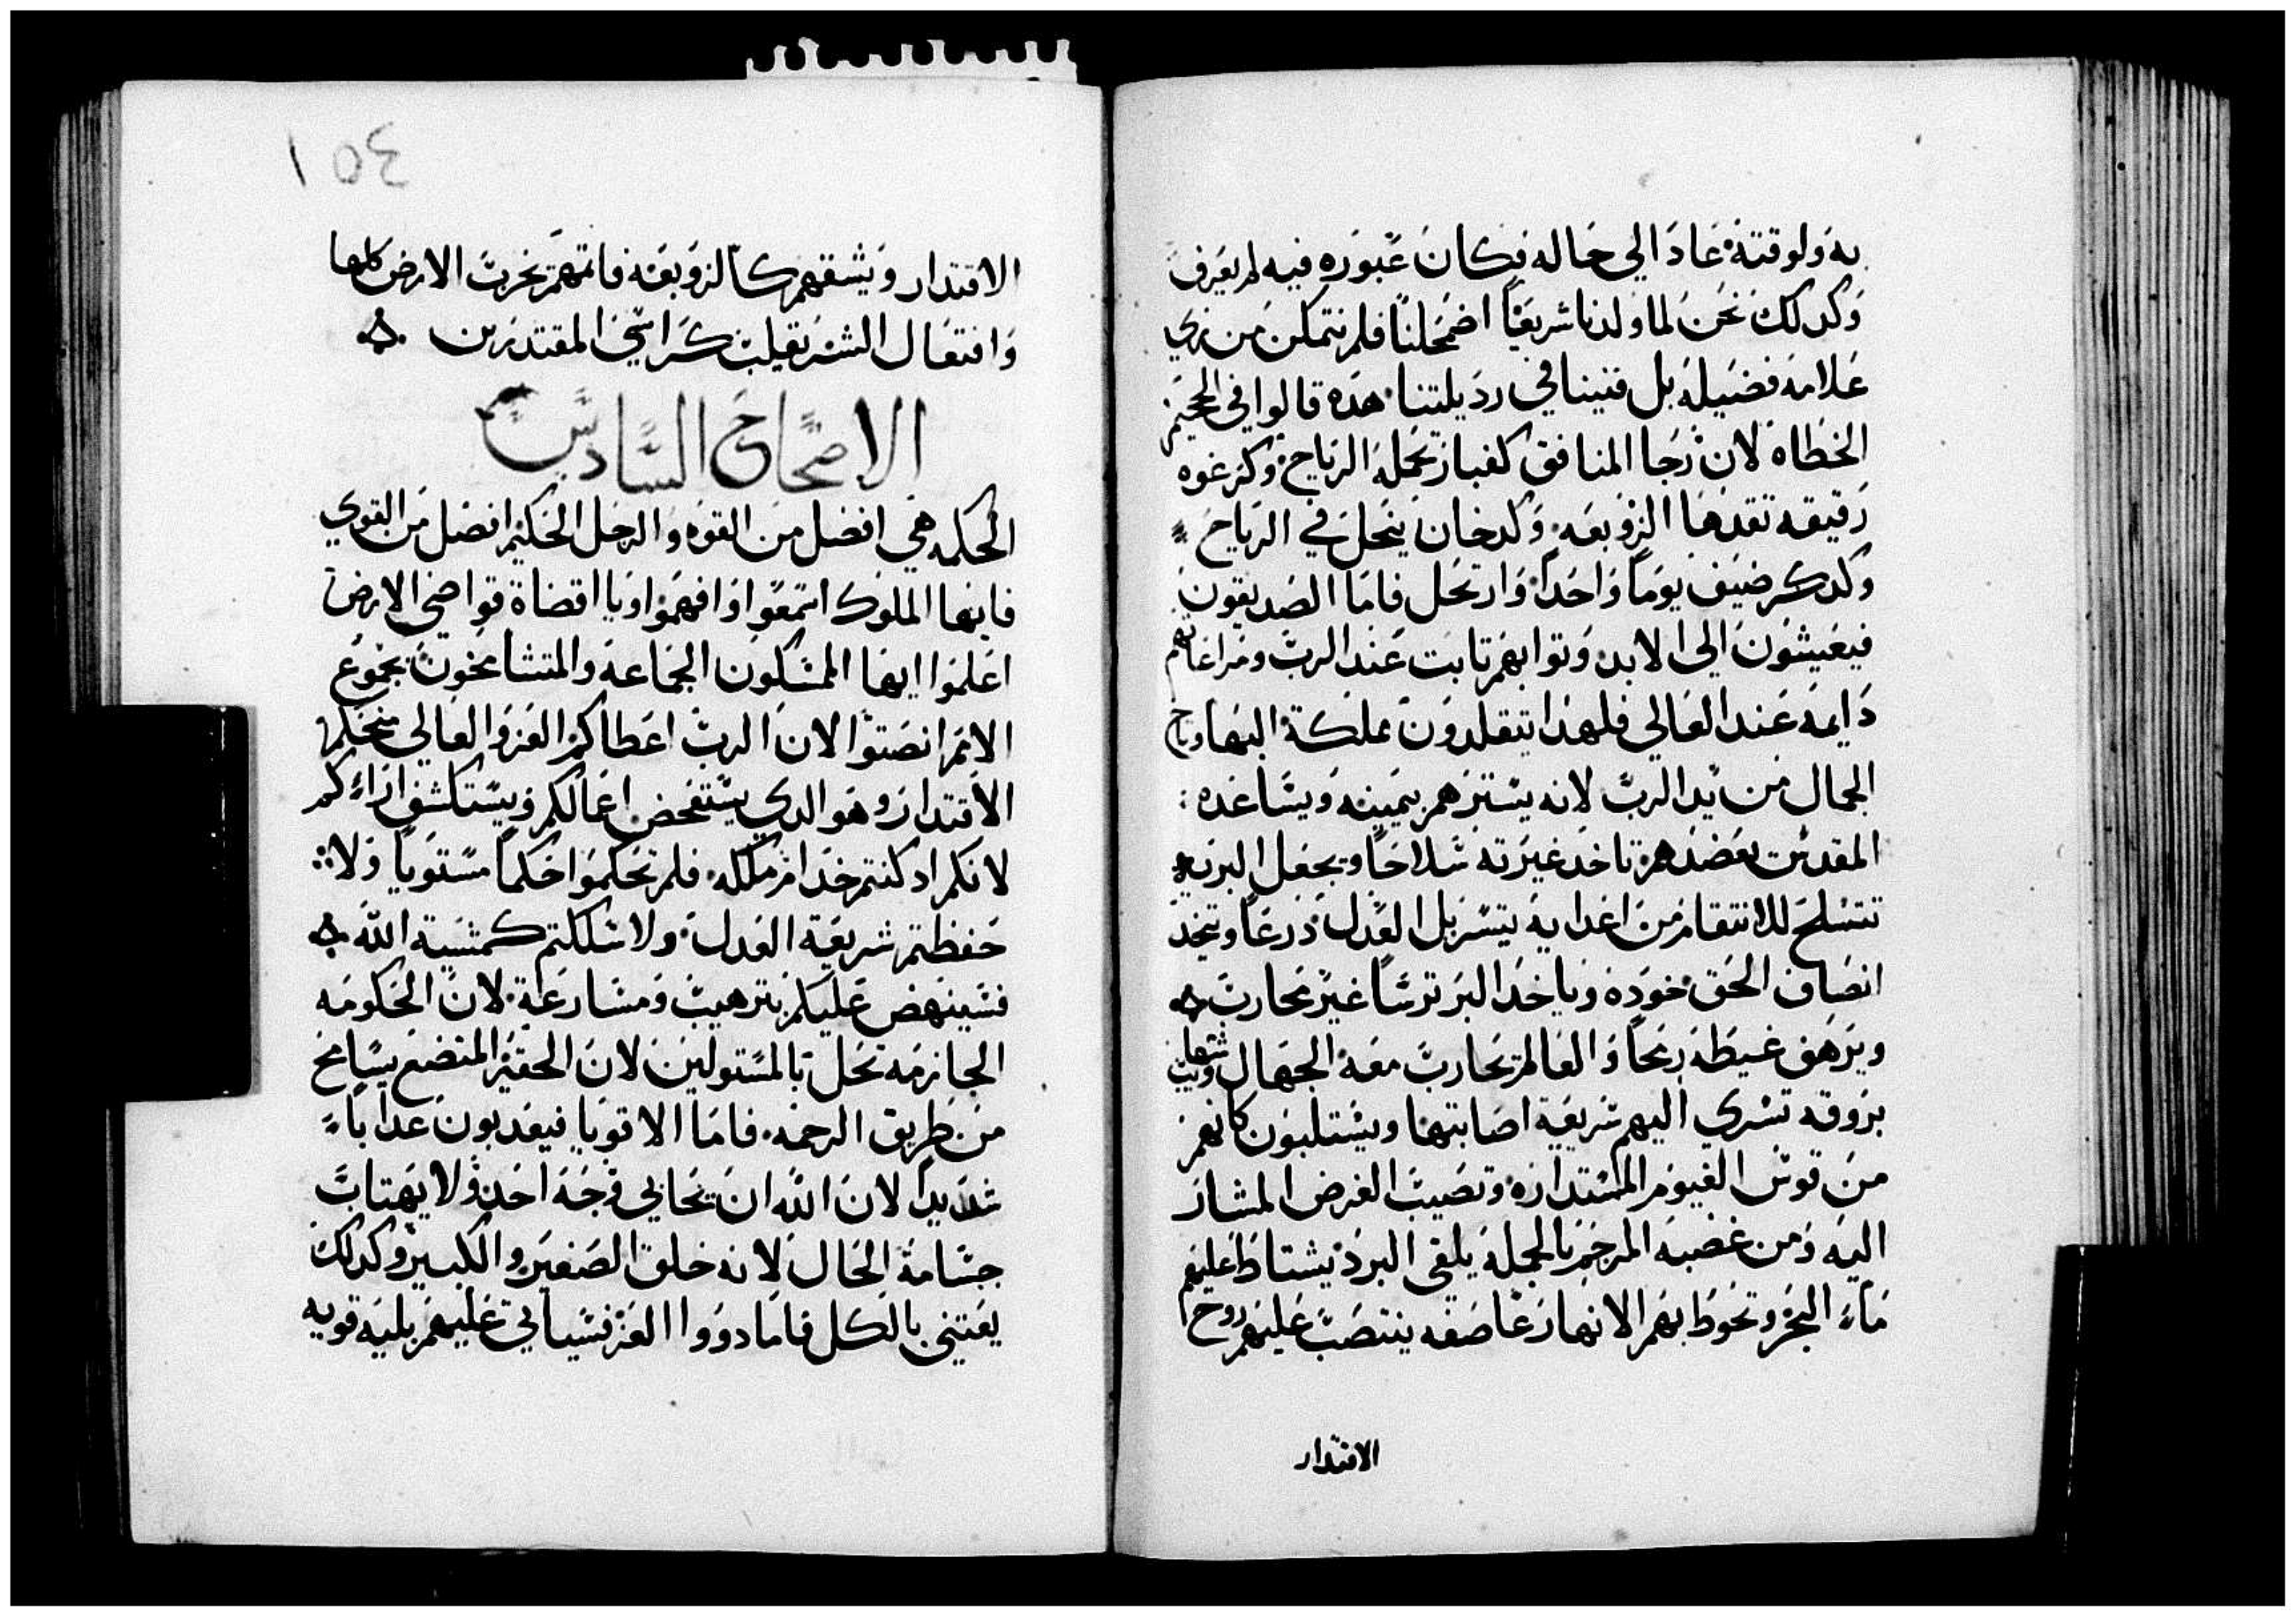 به ولوقته عاد الي حاله فكان عبوره فيه لم يعرف
وكدلك نحن لما ولدنا شريعًا اضمحلنا فلم نتمكن من نري
علامه فضيله بل فنينا في رديلتنا هده قالوا في الجحيم
الخطاه لان رجا المنافق كغبار تحمله الرياح وكزغوه
رقيقه تقدفها الزوبعه وكدخان ينحل في الرياح
وكدكر ضيف يومًا واحدًا وارتحل فاما الصديقون
فيعيشون الي الابد وتوابهم تابت عند الرب ومراعاتهم
دايمه عند العالي فلهدا يتقلدون مملكة البها وتاج
الجمال من يد الرب لانه يسترهم بيمينه ويساعده
المقدس يعضدهم تاخد غيرته سلاحًا ويجعل البريه
تتسلح للانتقام من اعدايه يتسربل العدل درعًا ويتخد
انصاف الحق خوده وياخد البر ترسًا غير محارب
ويرهف غيظه رمحًا والعالم يحارب معه الجهال وتيب شهبا
بروقه تسري اليهم سريعة اصابتها ويستلبون كانهم
من قوس الغيوم المستداره وتصيب الغرض المشار
اليه ومن غضبه المرجم بالمجله يلقي البرد يشتاط عليهم
ماء البحر وتحوط بهم الانهار عاصفه ينتصب عليهم روح
الاقتدار
١٥٤
الاقتدار ويشقهم كالزوبعه فاتمهم تخرب الارض كلها
وافتعال الشر يقلب كراسي المقتدرين
الاصحاح السادس
الحكمه هي افضل من القوه والرجل الحكيم افضل من القوي
فايها الملوك استمعوا وافهموا ويا اقضاة قواضي الارض
اعلموا ايها الممسكون الجماعه والمتشامخون بجموع
الامم انصتوا لان الرب اعطاكم العز والعالي منحكم
الاقتدار وهو الدي يستفحص اعمالكم ويستكشف اراءكم
لانكم اد كنتم خدام ملكه فلم تحكموا حكمًا مستويًا ولا
حفظتم شريعة العدل ولا سلكتم كمشية الله
فسينهض عليكم بترهيب ومسارعة لان الحكومه
الجازمه تحل بالمستولين لان الحقير المتضع يسامح
من طريق الرحمه فاما الاقويا فيعدبون عدابًا
شديدًا لان الله ان يحابي وجه احد ولا يهتاب
جسامة الحال لانه خلق الصغير والكبير وكدلك
يعتني بالكل فاما دووا العز فسياتي عليهم بليه قويه